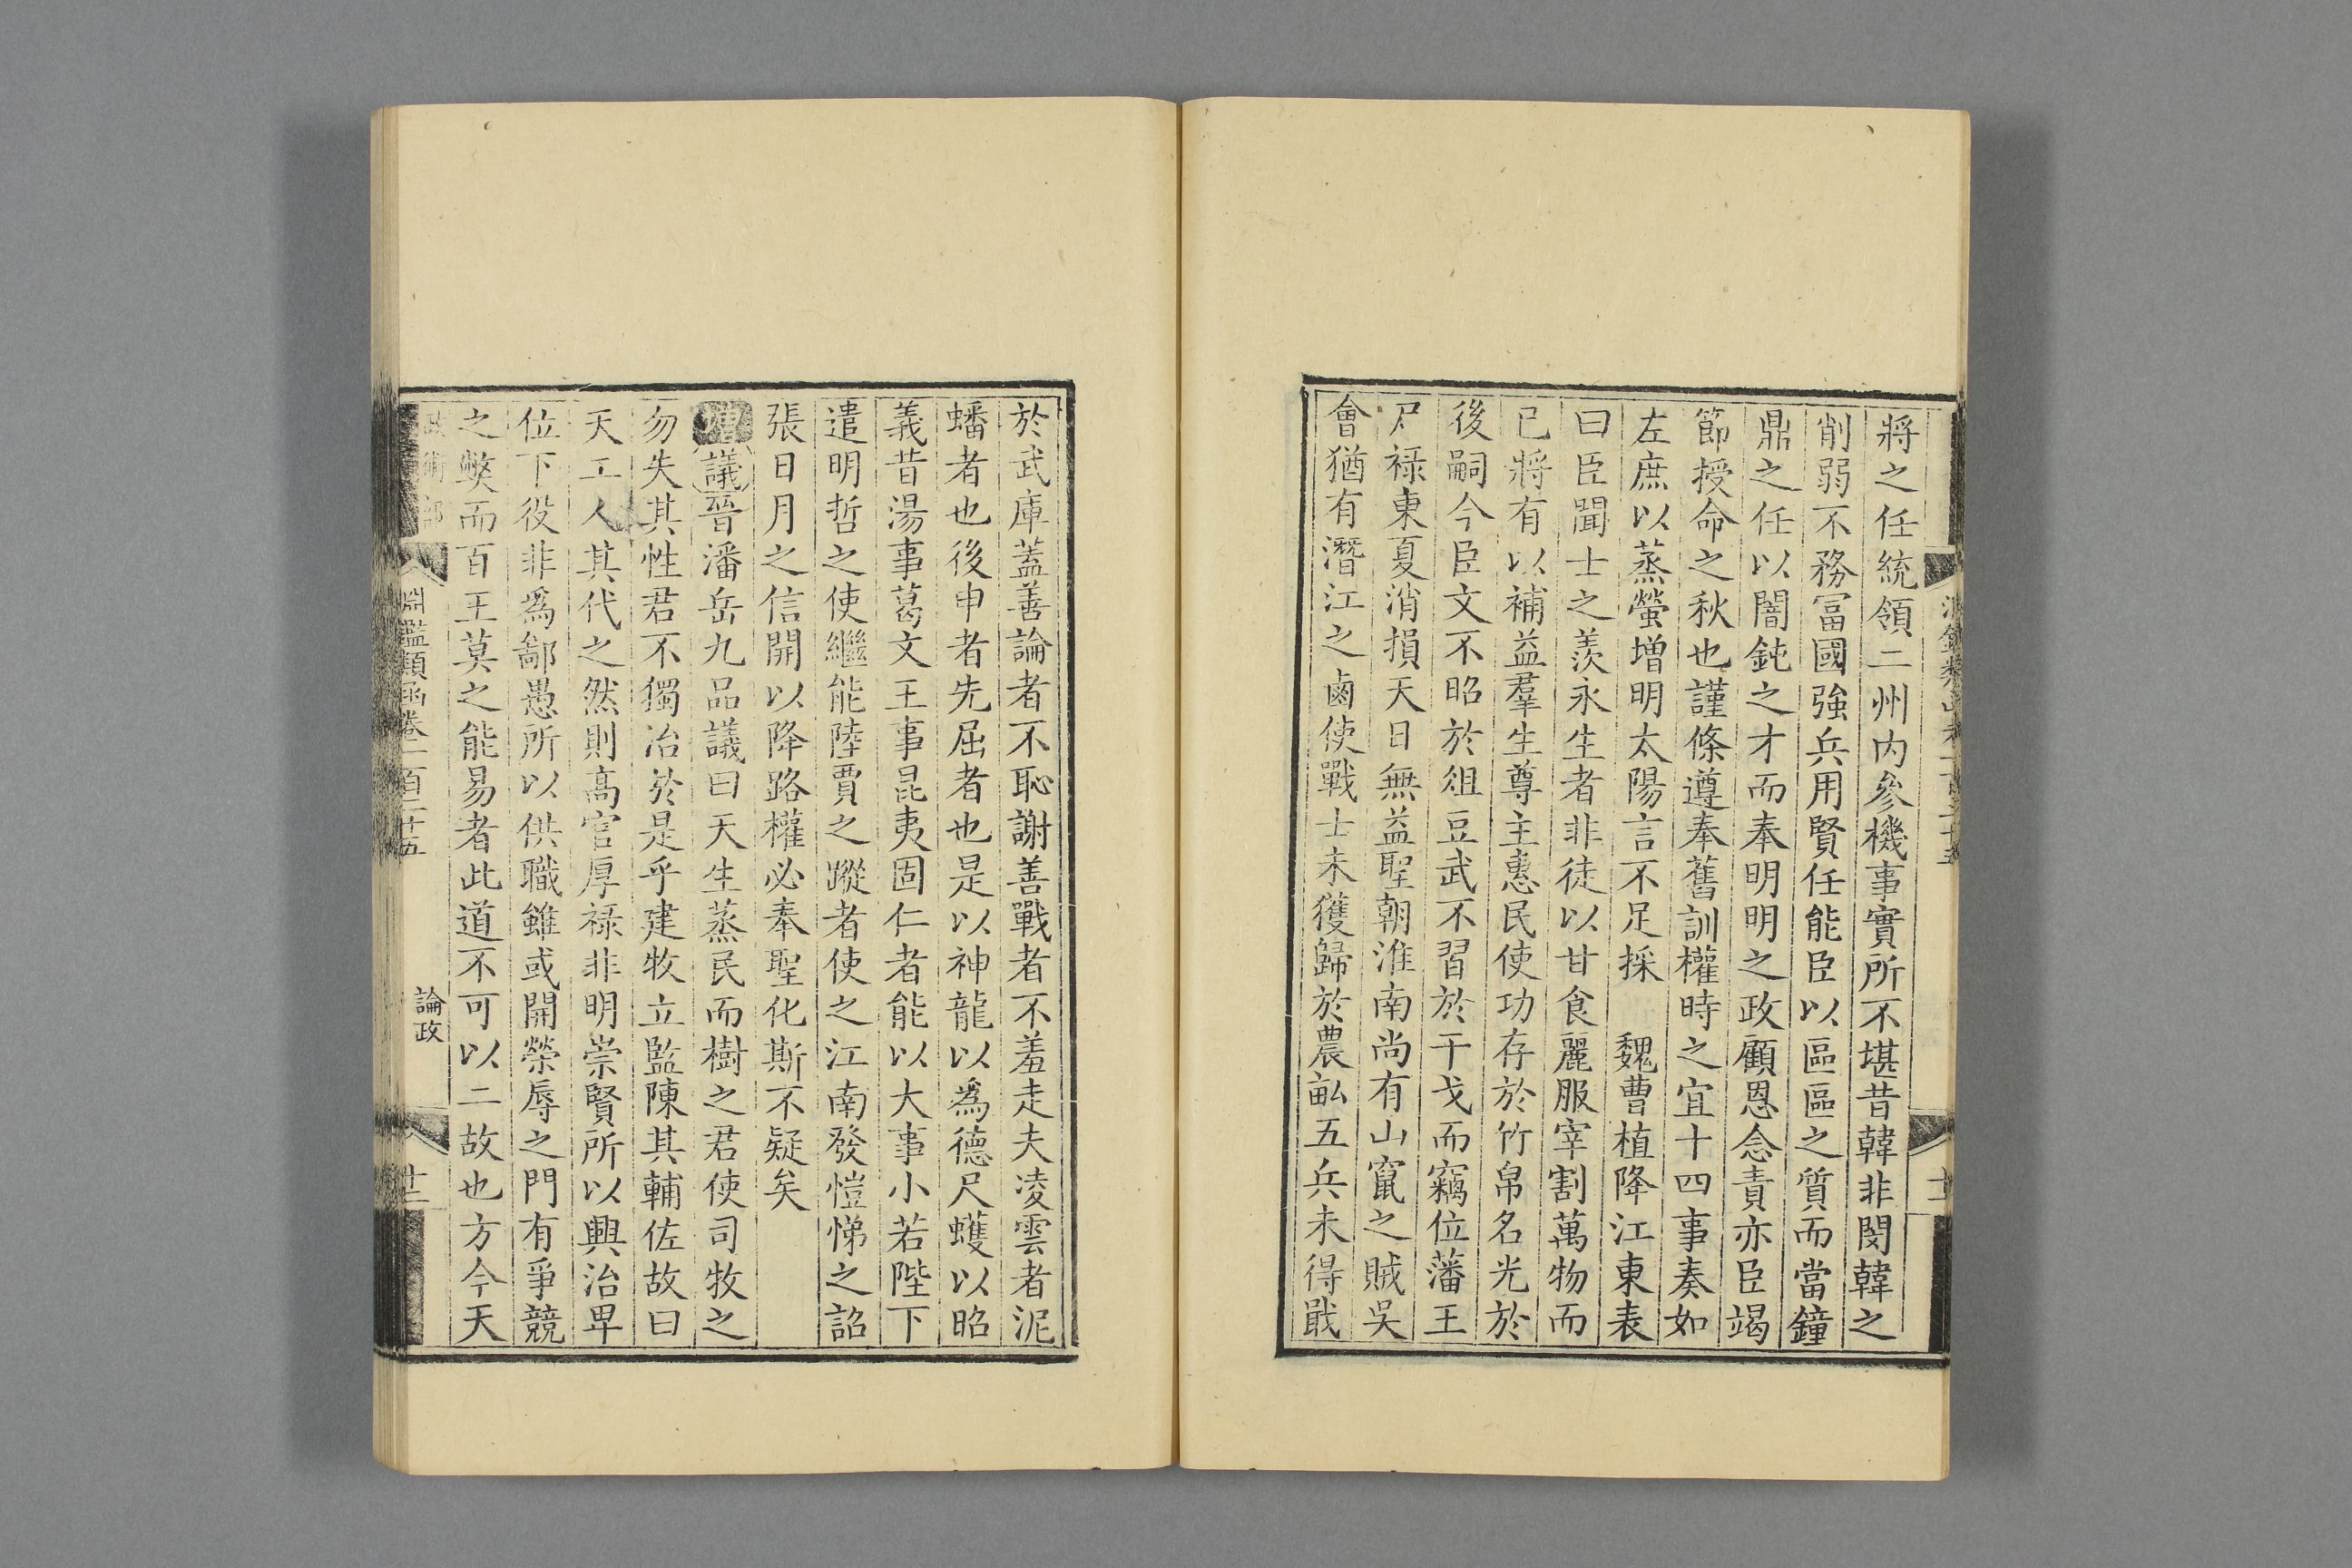 將之任統領二州内參機事實所不堪昔韓非閔韓之
削弱不務冨國強兵用賢任能臣以區區之質而當鐘
鼎之任以闇鈍之才而奉明明之政顧恩念責亦臣竭
節授命之秋也謹條遵奉舊訓權時之宜十四事奏如
左庶以蒸螢増明太陽言不足採 魏曹植降江東表
曰臣聞士之羨永生者非徒以甘食麗服宰割萬物而
已將有以補益羣生尊主惠民使功存於竹帛名光於
後嗣今臣文不昭於俎豆武不習於干戈而竊位藩王
尸禄東夏消損天日無益聖朝淮南尚有山竄之賊吳
會猶有潛江之鹵使戰士未獲歸於農畝五兵未得戢
於武庫蓋善論者不恥謝善戰者不羞走夫凌雲者泥
蟠者也後申者先屈者也是以神龍以爲德尺蠖以昭
義昔湯事葛文王事昆夷固仁者能以大事小若陛下
遣明哲之使繼能陸賈之蹤者使之江南發愷悌之詔
張日月之信開以降路權必奉聖化斯不疑矣
議晉潘岳九品議曰天生蒸民而樹之君使司牧之
勿失其性君不獨冶於是乎建牧立監陳其輔佐故曰
天工人其代之然則高官厚祿非明崇賢所以興治卑
位下役非爲鄙愚所以供職雖或開榮辱之門有爭競
之獘而百王莫之能易者此道不可以二故也方今天
淵鑑類函卷一百二十五
論政